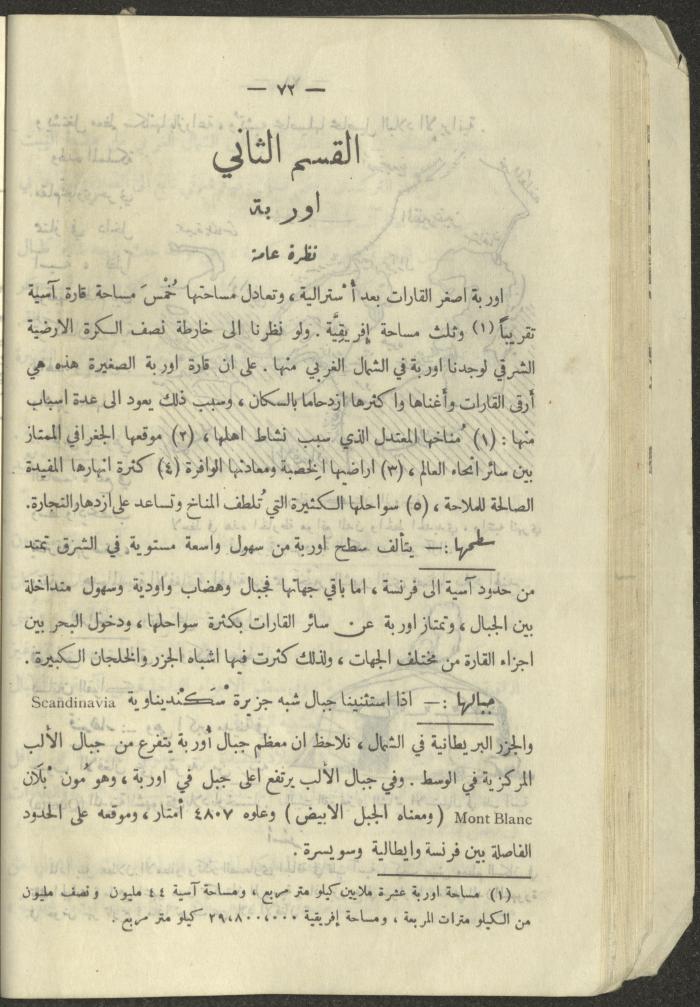 — ٧٢ —
القسم الثاني
اوربة
نظرة عامة
اوربة اصغر القارات بعد أُسترالية، وتعادل مساحتها خُمْسَ مساحة قارة آسية
تقريباً (١) وثلث مساحة إفريقيَّة . ولو نظرنا الى خارطة نصف الكرة الارضية
الشرقي لوجدنا اوربة في الشمال الغربي منها . على ان قارة اوربة الصغيرة هذه هي
أرقى القارات وأغناها واكثرها ازدحاما بالسكان ، وسبب ذلك يعود الى عدة اسباب
منها : (١) مُناخها المعتدل الذي سبب نشاط اهلها ، (٢) موقعها الجغرافي الممتاز
بين سائر انحاء العالم ، (٣) اراضيها الخِصبة ومعادنها الوافرة (٤) كثرة انهارها المفيدة
الصالحة للملاحة ، (٥) سواحلها الكثيرة التي تُلطف المناخ وتساعد على ازدهار التجارة.
سطحها : — يتألف سطح اوربة من سهول واسعة مستوية في الشرق تمتد
من حدود آسية الى فرنسة ، اما باقي جهاتها فجبال وهضاب واودية وسهول متداخلة
بين الجبال ، وتمتاز اوربة عن سائر القارات بكثرة سواحلها ، ودخول البحر بين
اجزاء القارة من مختلف الجهات ، ولذلك كثرت فيها اشباه الجزر والخلجان الكبيرة .
جبالها : — اذا استثنينا جبال شبه جزيرة سْكَنْديناوية Scandinavia
والجزر البريطانية في الشمال ، نلاحظ ان معظم جبال أوربة يتفرع من جبال الألب
المركزية في الوسط . وفي جبال الألب يرتفع اعلى جبل في اوربة ، وهو مُون بْلَان
Mont Blanc ( ومعناه الجبل الابيض ) وعلوه ٤٨٠٧ أمتار ، وموقعه على الحدود
الفاصلة بين فرنسة وايطالية وسويسرة .
(١) مساحة اوربة عشرة ملايين كيلو متر مربع ، ومساحة آسية ٤٤ مليون ونصف مليون
من الكيلو مترات المربعة ، ومساحة إفريقية ٢٩،٨٠٠،٠٠٠ كيلو متر مربع .